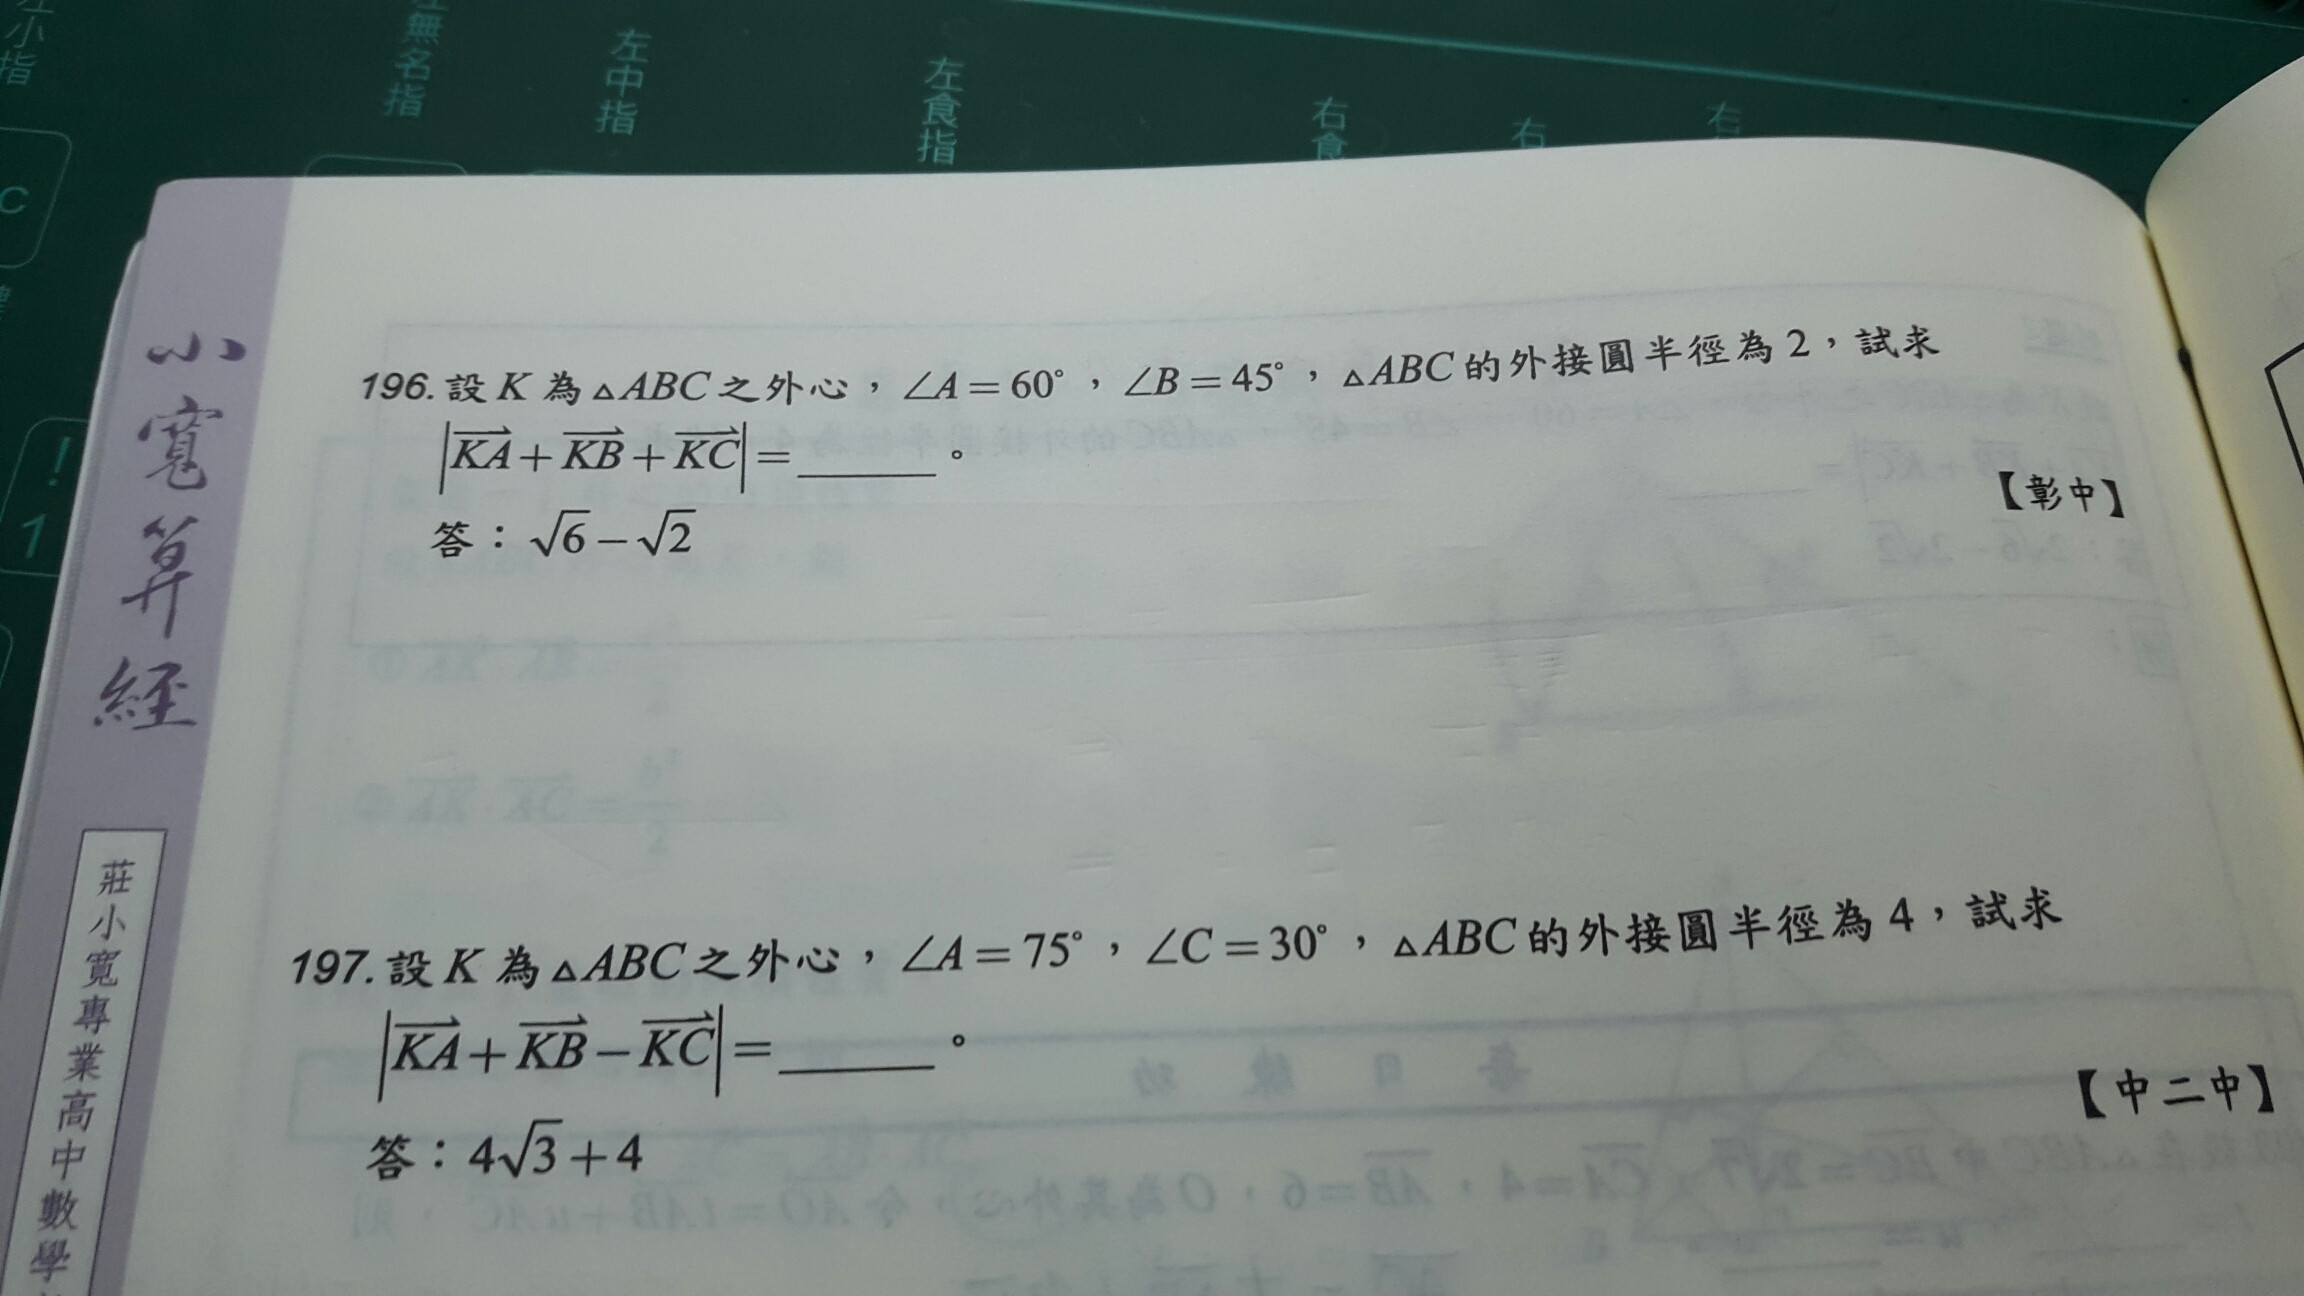 左小指
左無名指
左中指
左食指
右食
右
右
C
!
1
小寬算經
莊小寬專業高中數學
196. 設 K 為 △ABC 之外心,∠A = 60°,∠B = 45°,△ABC 的外接圓半徑為 2,試求
|KA + KB + KC| = ______。
【彰中】
答:√6 − √2
197. 設 K 為 △ABC 之外心,∠A = 75°,∠C = 30°,△ABC 的外接圓半徑為 4,試求
|KA + KB − KC| = ______。
【中二中】
答:4√3 + 4